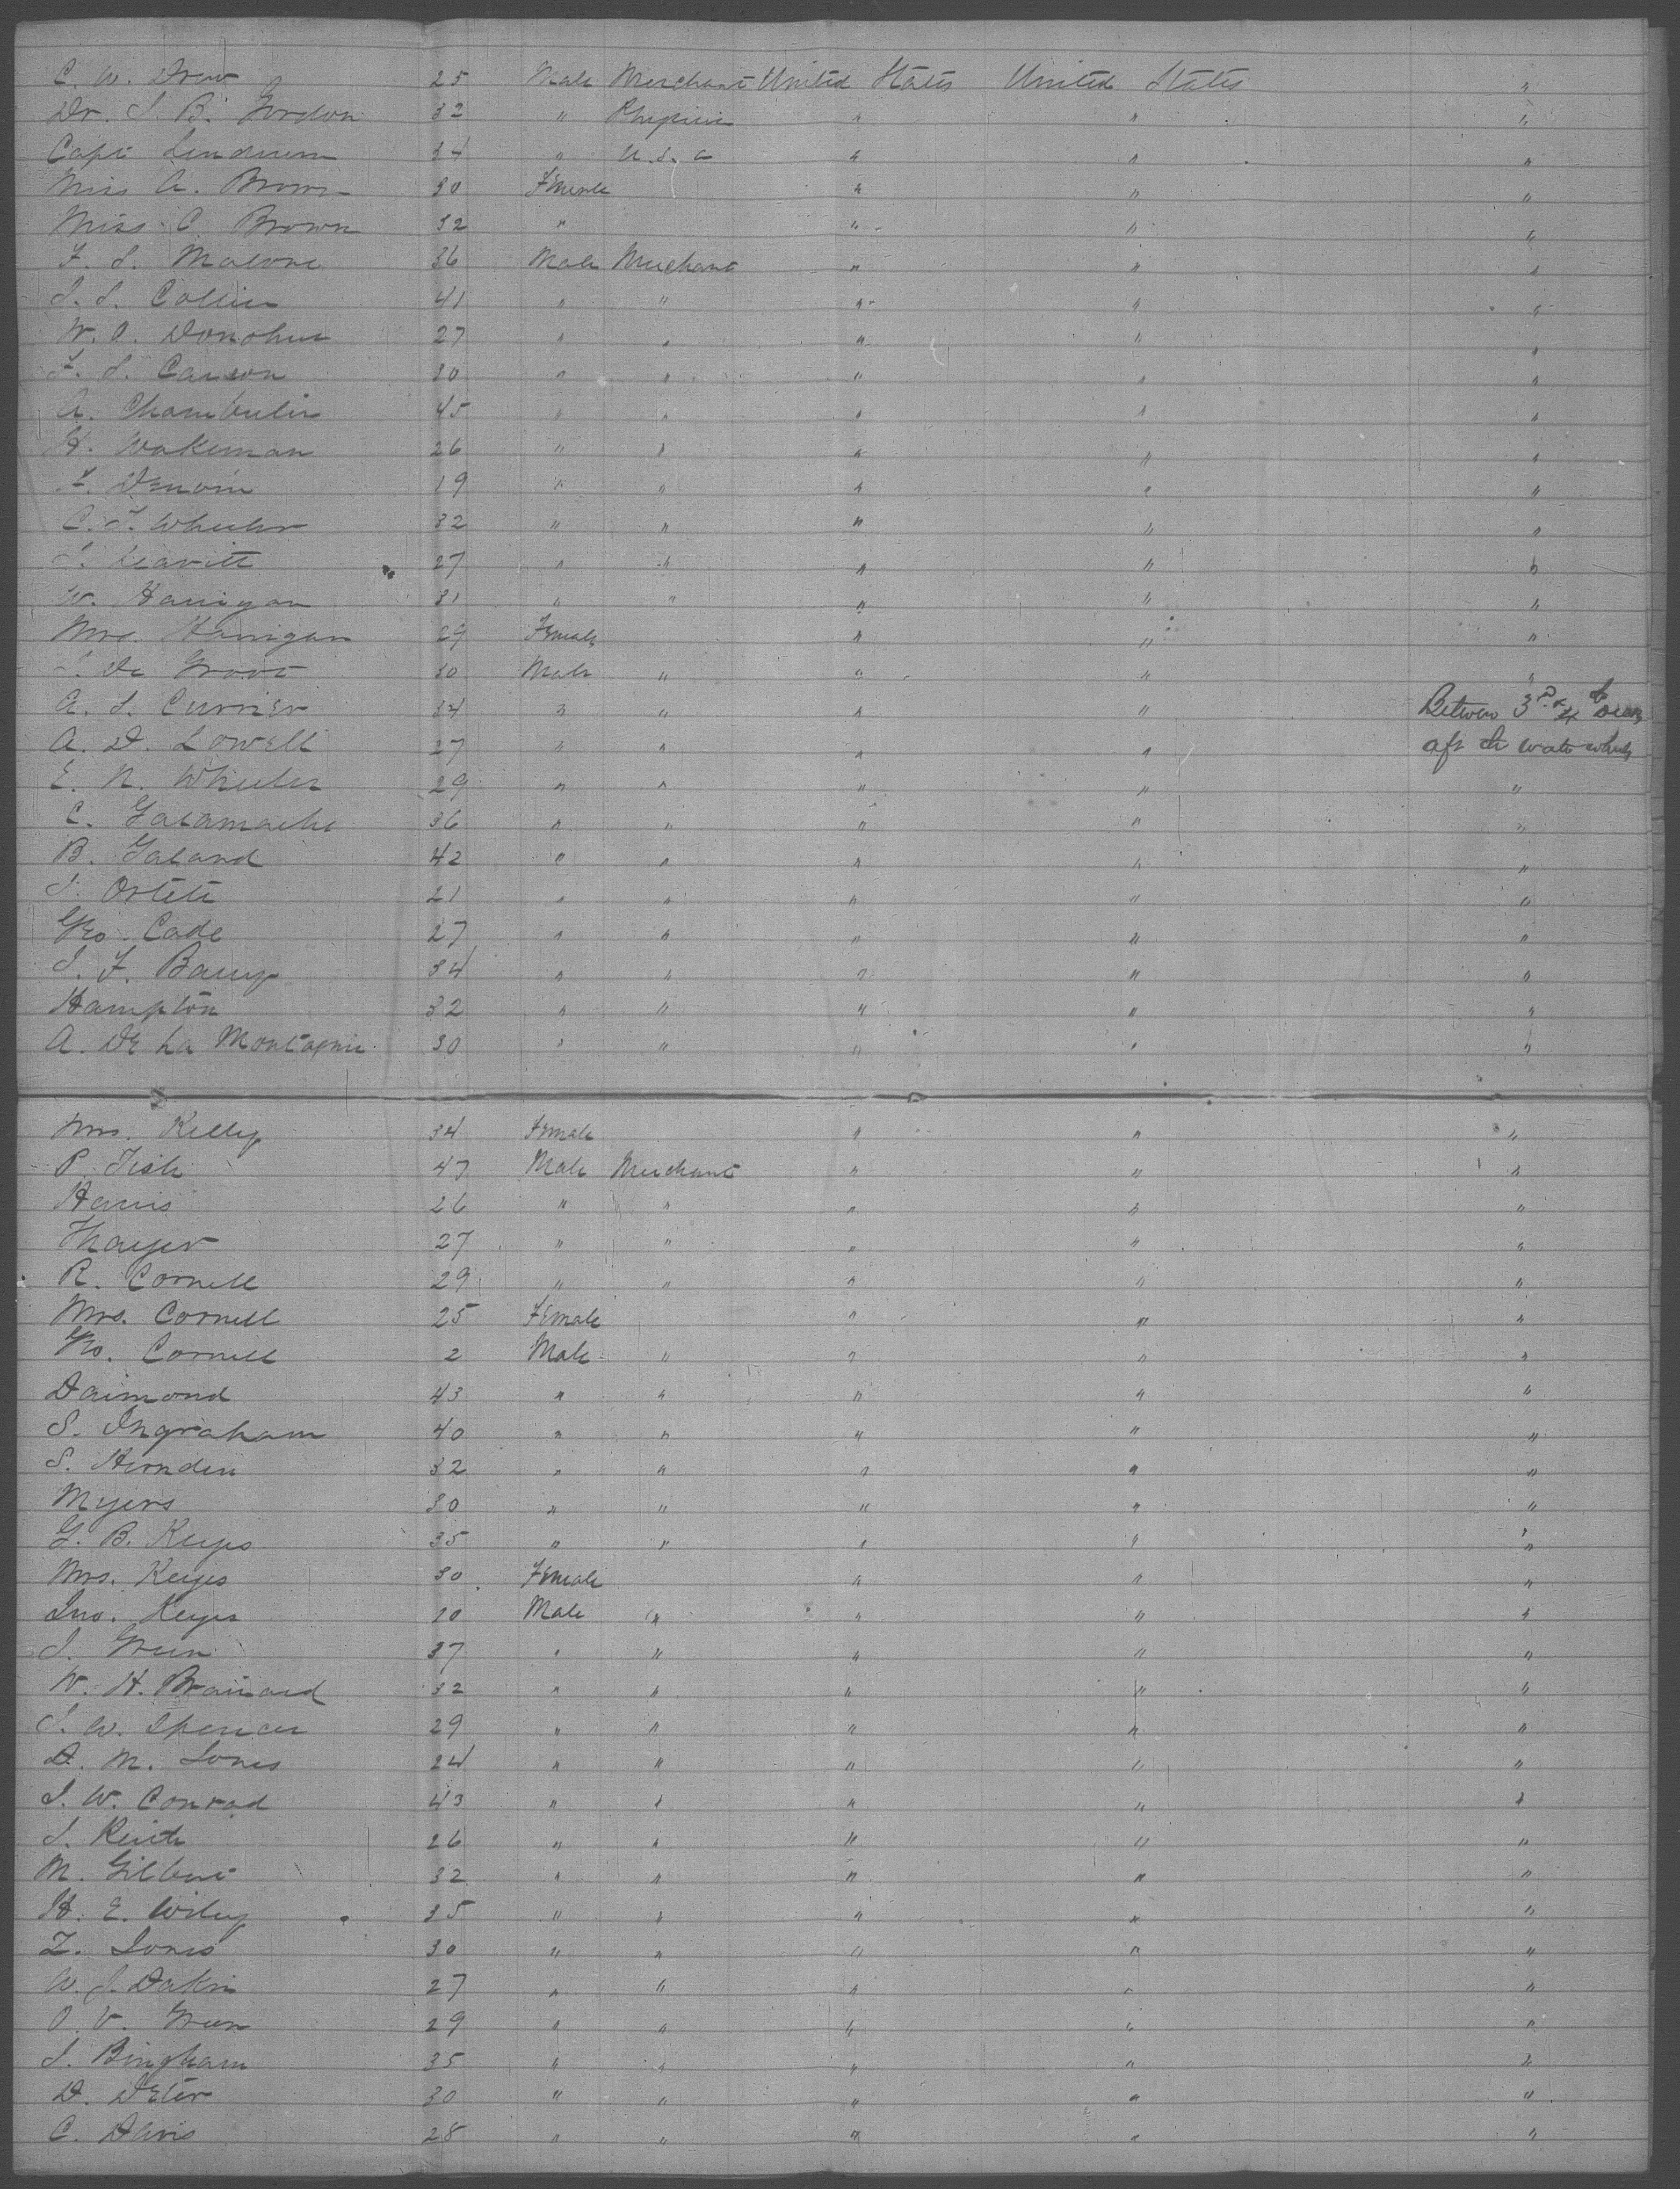 C. W. Drew 25 Male Merchant United States United States "
Dr. S. B. Gordon 32 " Physician " " "
Capt 34 " U. S. a " " "
Miss A. Brown 30 Female " " "
Miss C. Brown 32 " " " "
F. S. Malone 36 Male Merchant " " "
S. S. Collier 41 " " " " "
W. O. Donohue 27 " " " " "
F. S. Carson 30 " " " " "
A. Chamberlin 45 " " " " "
H. Wakeman 26 " " " " "
19 " " " " "
C. F. Wheeler 32 " " " " "
S. Leavitt 27 " " " " "
W. Hanigan 31 " " " " "
Mrs. Hanigan 29 Female " " "
De Groot 30 Male " " " "
A. S. Currier 34 " " " " Between 3rd & 4th
A. D. Lowell 27 " " " " aft water wheels
E. N. Wheeler 29 " " " " "
C. Garamache 36 " " " " "
B. Galand 42 " " " " "
S. 21 " " " " "
Geo. Cade 27 " " " " "
S. F. Barry 34 " " " " "
Hampton 32 " " " " "
A. De La Montagnie 30 " " " " "
Mrs. Kelly 34 Female " " "
P. Fish 47 Male Merchant " " "
Harris 26 " " " " "
Thayer 27 " " " " "
R. Cornell 29 " " " " "
Mrs. Cornell 25 Female " " "
Geo. Cornell 2 Male " " " "
Daimond 43 " " " " "
S. Ingraham 40 " " " " "
S. Hernden 32 " " " " "
Myers 30 " " " " "
G. B. Keyes 35 " " " " "
Mrs. Keyes 30 Female " " "
Jno. Keyes 10 Male " " " "
S. Green 37 " " " " "
W. H. Brainard 32 " " " " "
S. W. Spencer 29 " " " " "
D. M. Jones 24 " " " " "
J. W. Conrad 43 " " " " "
J. Keith 26 " " " " "
M. Gilbert 32 " " " " "
H. E. Wiley 35 " " " " "
Z. Jones 30 " " " " "
W. J. Dakin 27 " " " " "
O. V. Green 29 " " " " "
J. Bingham 35 " " " " "
D. Deter 30 " " " " "
C. Davis 28 " " " " "